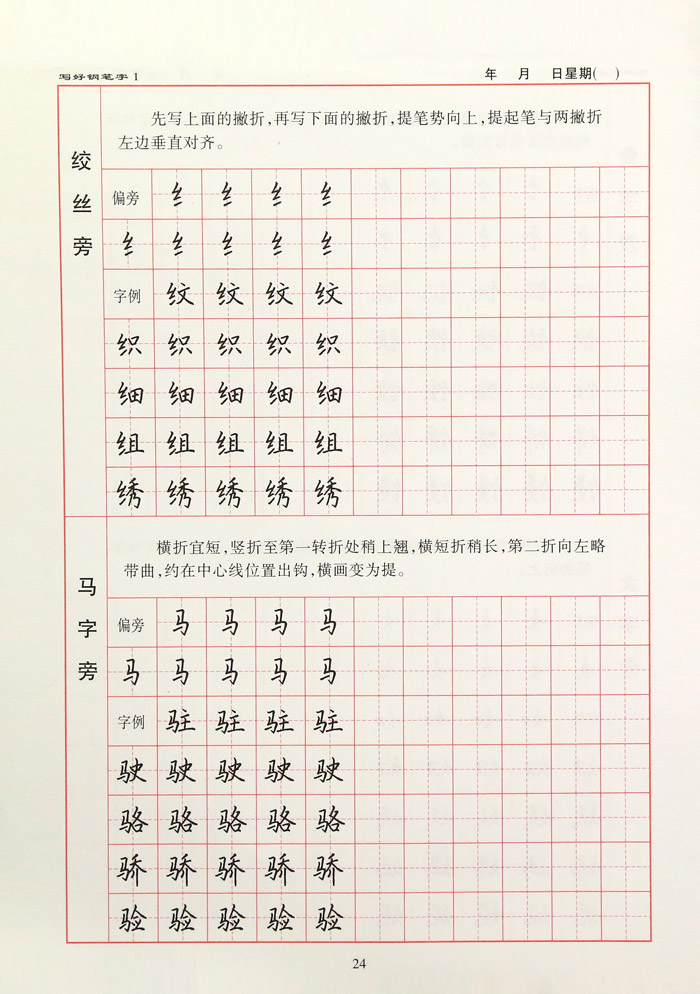 写好钢笔字 1
年 月 日星期( )
绞丝旁
先写上面的撇折,再写下面的撇折,提笔势向上,提起笔与两撇折
左边垂直对齐。
偏旁 纟 纟 纟 纟
纟 纟 纟 纟 纟
字例 纹 纹 纹 纹
织 织 织 织 织
细 细 细 细 细
组 组 组 组 组
绣 绣 绣 绣 绣
马字旁
横折宜短,竖折至第一转折处稍上翘,横短折稍长,第二折向左略
带曲,约在中心线位置出钩,横画变为提。
偏旁 马 马 马 马
马 马 马 马 马
字例 驻 驻 驻 驻
驶 驶 驶 驶 驶
骆 骆 骆 骆 骆
骄 骄 骄 骄 骄
验 验 验 验 验
24